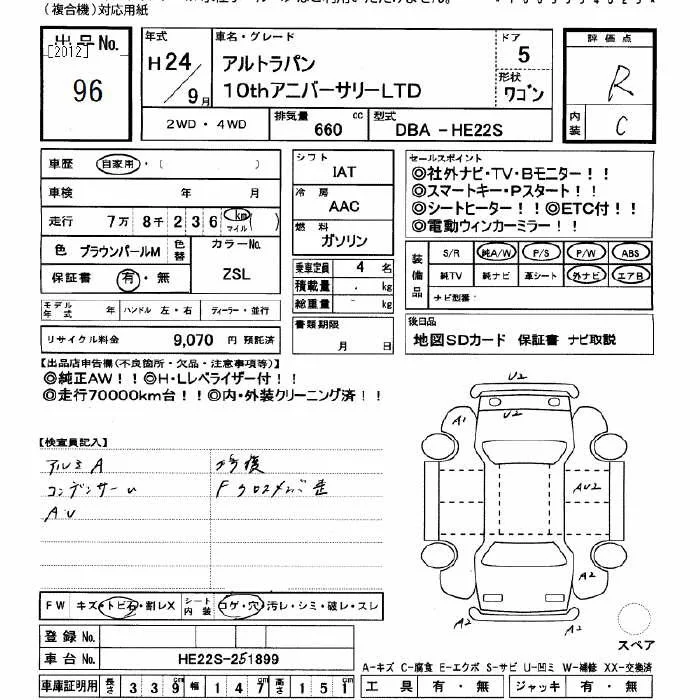 （複合機）対応用紙
出品No. 年式 車名・グレード ドア 評価点
[2012] H24 アルトラパン 5 R
96 9月 10thアニバーサリーLTD 形状 ワゴン 内装 C
2WD・4WD 排気量 660 cc 型式 DBA-HE22S
車歴 自家用・( )
車検 年 月
走行 7万 8千 2 3 6 km マイル ( )
色 ブラウンパールM 色替 カラーNo.
保証書 有・無 ZSL
モデル年式 年 ハンドル 左・右 ディーラー・並行
リサイクル料金 9,070 円 預託済
シフト IAT
冷房 AAC
燃料 ガソリン
乗車定員 4 名
積載量 kg
総重量 kg
書類期限
月 日
セールスポイント
◎社外ナビ・TV・Bモニター！！
◎スマートキー・Pスタート！！
◎シートヒーター！！◎ETC付！！
◎電動ウィンカーミラー！！
装備品 S/R 純A/W P/S P/W ABS
純TV 純ナビ 革シート 外ナビ エアB
ナビ型番
後日品
地図SDカード 保証書 ナビ取説
【出品店申告欄(不良箇所・欠品・注意事項等)】
◎純正AW！！◎H・Lレベライザー付！！
◎走行70000km台！！◎内・外装クリーニング済！！
【検査員記入】
アルミA 修復
コンデンサーU Fクロスメンバ歪
AU
U2
U2
A1
A2
AU2
A2
A2
A2
スペア
FW キズ・トビ石・割レX シート内装 コゲ・穴・汚レ・シミ・破レ・スレ
登録No.
車台No. HE22S-251899
A-キズ C-腐食 E-エクボ S-サビ U-凹ミ W-補修 XX-交換済
車庫証明用 長さ 339cm 幅 147cm 高さ 151cm 工具 有・無 ジャッキ 有・無